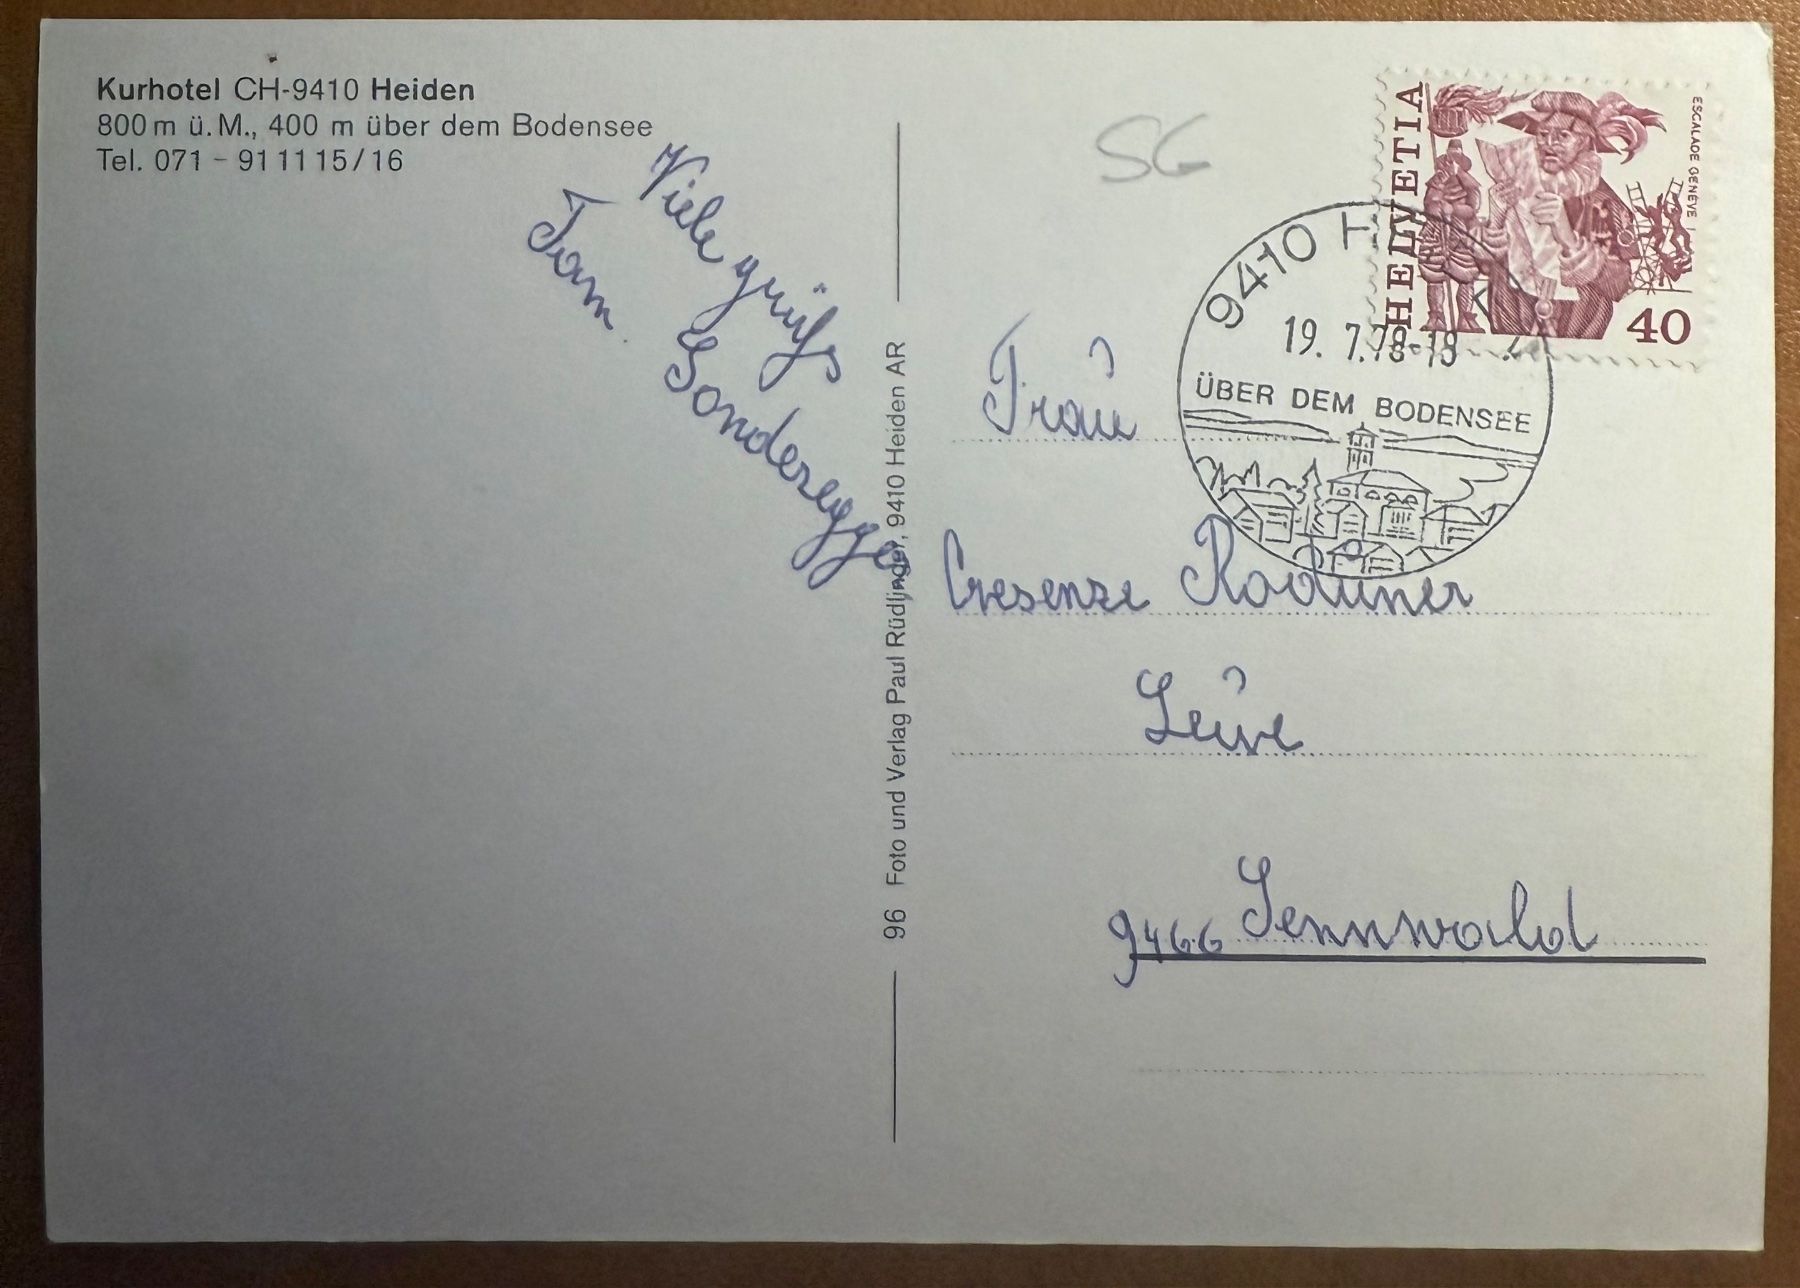 Kurhotel CH-9410 Heiden
800 m ü. M., 400 m über dem Bodensee
Tel. 071 – 91 11 15/16
Viele grüss
Fam. Sonderegger
96 Foto und Verlag Paul Rüdlinger, 9410 Heiden AR
SG
HELVETIA
ESCALADE GENÈVE
40
9410 H
19. 7.78-18
ÜBER DEM BODENSEE
Frau
Cresenze Roduner
Leüve
9466 Sennwald